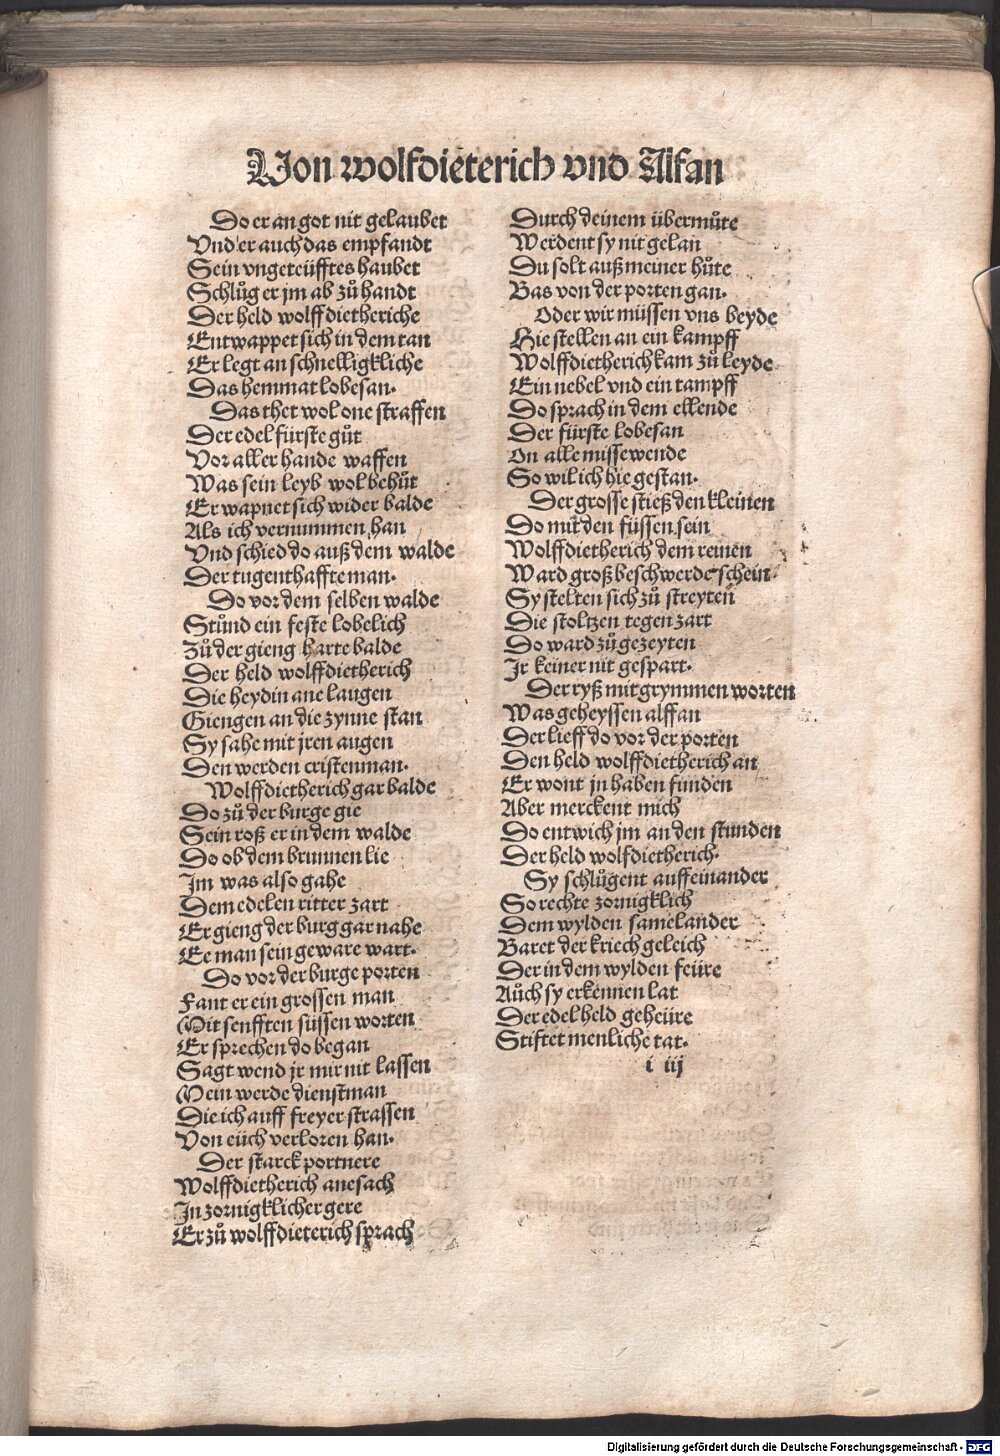 Von wolfdieterich vnd Alfan
Do er an got nit gelaubet
Vnd er auch das empfandt
Sein vngeteüfftes haubet
Schlůg er jm ab zů handt
Der held wolff dietheriche
Entwappet sich in dem tan
Er legt an schnelligkliche
Das hemmat lobesan.
Das thet wol one straffen
Der edel fürste gůt
Vor aller hande waffen
Was sein leyb wol behůt
Er wapnet sich wider balde
Als ich vernummen han
Vnd schied do auß dem walde
Der tugenthaffte man.
Do vor dem selben walde
Stůnd ein feste lobelich
Zů der gieng harte balde
Der held wolffdietherich
Die heydin ane laugen
Giengen an die zynne stan
Sy sahe mit jren augen
Den werden cristenman.
Wolffdietherich gar balde
Do zů der burge gie
Sein roß er in dem walde
Do ob dem brunnen lie
Im was also gahe
Dem edelen ritter zart
Er gieng der burg gar nahe
Ee man sein geware wart.
Do vor der burge porten
Fant er ein grossen man
Mit senfften süssen worten
Er sprechen do began
Sagt wend jr mir nit lassen
Mein werde dienstman
Die ich auff freyer strassen
Von eüch verloren han.
Der starck portnere
Wolffdietherich anesach
In zornigklicher gere
Er zů wolffdieterich sprach
Durch deinem übermůte
Werdent sy nit gelan
Du solt auß meiner hůte
Bas von der porten gan.
Oder wir müssen vns beyde
Hie stellen an ein kampff
Wolffdietherich kam zů leyde
Ein nebel vnd ein tampff
Do sprach in dem ellende
Der fürste lobesan
On alle missewende
So wil ich hie gestan.
Der grosse stieß den kleinen
Do mit den füssen sein
Wolffdietherich dem reinen
Ward groß beschwerde schein.
Sy stelten sich zů streyten
Die stoltzen tegen zart
Do ward zů gezeyten
Ir keiner nit gespart.
Der ryß mit grymmen worten
Was geheyssen alffan
Der lieff do vor der porten
Den held wolffdietherich an
Er wont jn haben funden
Aber merckent mich
Do entwich jm an den stunden
Der held wolfdietherich.
Sy schlůgent auffeinander
So rechte zornigklich
Dem wylden samelander
Baret der kriech geleich
Der in dem wylden feüre
Aůch sy erkennen lat
Der edel held geheüre
Stiftet menliche tat.
i iij
Digitalisierung gefördert durch die Deutsche Forschungsgemeinschaft - DFG